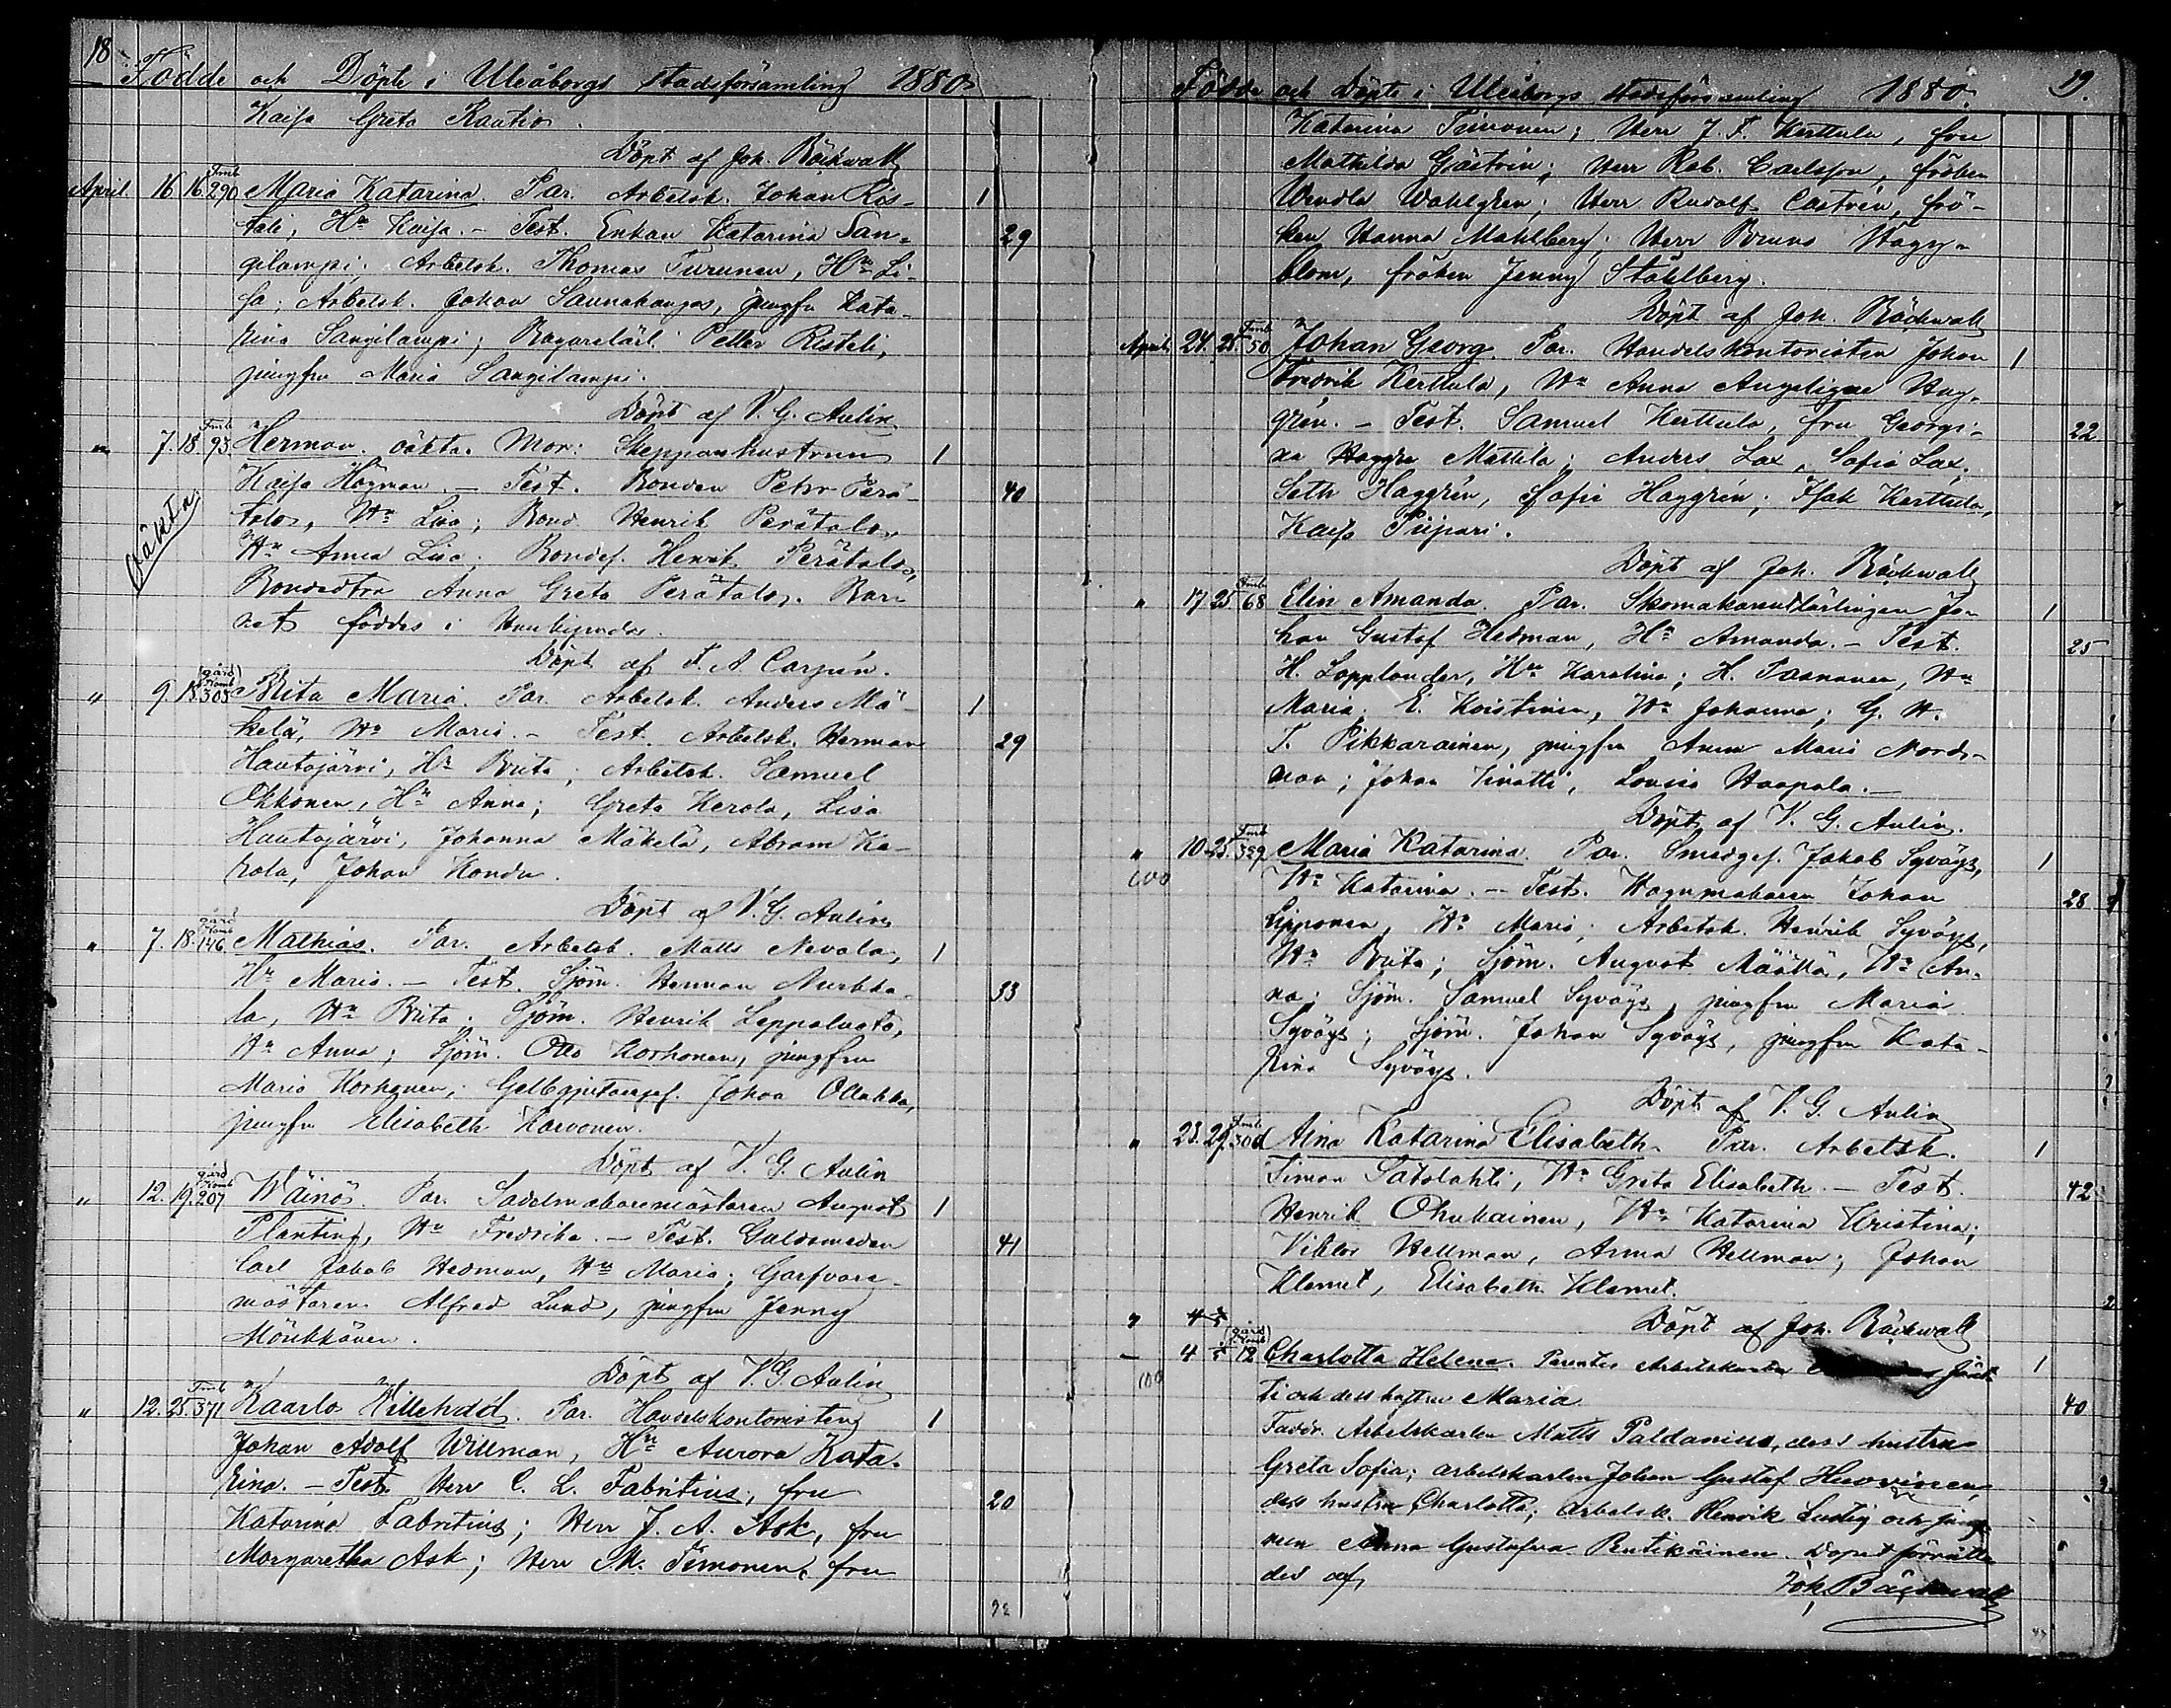 18
Födde och Döpte i Uleåborgs stadsförsamling 1880
Kaisa Greta Rautio.
Döpt af Joh. Bäckwall
April 16 16 Fmb 290 Maria Katarina. Par. Arbetsk. Johan Ris- 1
teli, Hu Kaisa. – Test. Enkan Katarina San- 29
gilampi; Arbetsk. Thomas Turunen, Hu Li-
sa; Arbetsk. Johan Saunakangas, jungfu Kata-
rina Sangilampi; Bagarelärl. Petter Risteli,
jungfru Maria Sangilampi.
Döpt af V. G. Aulin
" 7. 18. Fmb 93. Herman. oäkta. Mor: Skeppar hustrun 1
Kaisa Högman. – Test. Bonden Petter Perä- 40
talo, Hu Lisa; Bond. Henrik Perätalo,
oäkta
Hu Anna Lisa; Bondes. Henrik Perätalo,
Bondedtra Anna Greta Perätalo. Bar-
net föddes i Haukipudas.
Döpt af F. A. Carpén.
" 9. 18. (gård Komb 305 Brita Maria. Par. Arbetsk. Anders Mä- 1
kelä, Hu Maria. – Test. Arbetsk. Herman 29
Hautajärvi, Hu Brita; Arbetsk. Samuel
Okkonen, Hu Anna; Greta Kerola, Lisa
Hautajärvi, Johanna Mäkelä, Abram Ke-
rola, Johan Kondu.
Döpt af V. G. Aulin
" 7. 18. gård Komb 146 Mathias. Par. Arbetsk. Matts Nevala, 1
Hu Maria. – Test. Sjöm. Herman Nurkka- 33
la, Hu Brita; Sjöm. Henrik Leppaluoto,
Hu Anna; Sjöm. Otto Korhonen, jungfru
Maria Korhonen; Gelbgjutaregef. Johan Ollakka,
jungfru Elisabeth Karvonen.
Döpt af V. G. Aulin
" 12. 19. gård Komb 207 Wäinö. Par. Sadelmakaremästaren August 1
Planting, Hu Fredrika. – Test. Guldsmeden 41
Carl Jakob Hedman, Hu Maria; Garfvare-
mästaren Alfred Lund, jungfru Jenny
Mörkkönen.
Döpt af V. G. Aulin
" 12. 25. Fmb 371 Kaarlo Willehad. Par. Handelskontoristen 1
Johan Adolf Willman, Hu Aurora Kata-
rina. – Test. Herr C. L. Fabritius, fru 20
Katarina Fabritius; Herr J. A. Ask, fru
Margaretha Ask; Herr M. Timonen, fru
Födde och Döpte i Uleåborgs stadsförsamling 1880. 19.
Katarina Timonen; Herr J. F. Kerttula, fru
Mathilda Gästrin; Herr Rob. Carlsson, fröken
Wendla Wahlgren; Herr Rudolf Castrén, frö-
ken Hanna Mahlberg; Herr Bruno Hägg-
blom, fröken Jenny Ståhlberg.
Döpt af Joh. Bäckwall
April 24. 25. Fmb 50 Johan Georg. Par. Handelskontoristen Johan 1
Fredrik Kerttula, Hu Anna Angelique Hag-
grén. – Test. Samuel Kerttula, fru Georgi- 22
na Mattila; Anders Lax, Sofia Lax;
Seth Haggrén, Sofia Haggrén; Isak Kerttula,
Kaisa Piipari.
Döpt af Joh. Bäckwall
" 17 25 Fmb 68 Elin Amanda. Par. Skomakarelärlingen Jo- 1
han Gustaf Hedman, Hu Amanda. – Test. 25
H. Lopplander, Hu Karolina; H. Paananen, Hu
Maria; E. Koistinen, Hu Johanna; G. H.
T. Pikkarainen, jungfru Anna Maria Nord-
man; Johan Kinatti, Lovisa Haapala. –
Döpt af V. G. Aulin.
" 10. 25. Fmb 329 Maria Katarina. Par. Smedges. Jakob Syväys, 1
100
Hu Katarina. – Test. Vagnmakaren Johan 28
Lipponen, Hu Maria; Arbetsk. Henrik Syväys,
Hu Brita; Sjöm. August Määttä, Hu An-
na; Sjöm. Samuel Syväys, jungfru Maria
Syväys; Sjöm. Johan Syväys, jungfru Kata-
rina Syväys.
Döpt af V. G. Aulin
" 23. 29. Fmb 30d Aina Katarina Elisabeth. Par. Arbetsk. 1
Simon Satolahti, Hu Greta Elisabeth. – Test. 42
Henrik Ohukainen, Hu Katarina Kristina;
Viktor Hellman, Anna Hellman; Johan
Klemet, Elisabeth Klemet.
Döpt af Joh. Bäckwall
4 (gård Komb) 12 Charlotta Helena. Parentes Arbetskarlen 1
100
ti och dess hustru Maria. 40
Faddr. Arbetskarlen Matts Paldanius, dess hustru
Greta Sofia; arbetskarlen Johan Gustaf Huovinen,
dess hustru Charlotta; arbetsk. Henrik Lustig och jung-
frun Anna Gustafva Rutikainen. Dopet förrätta-
des af,
Joh. Bäckwall